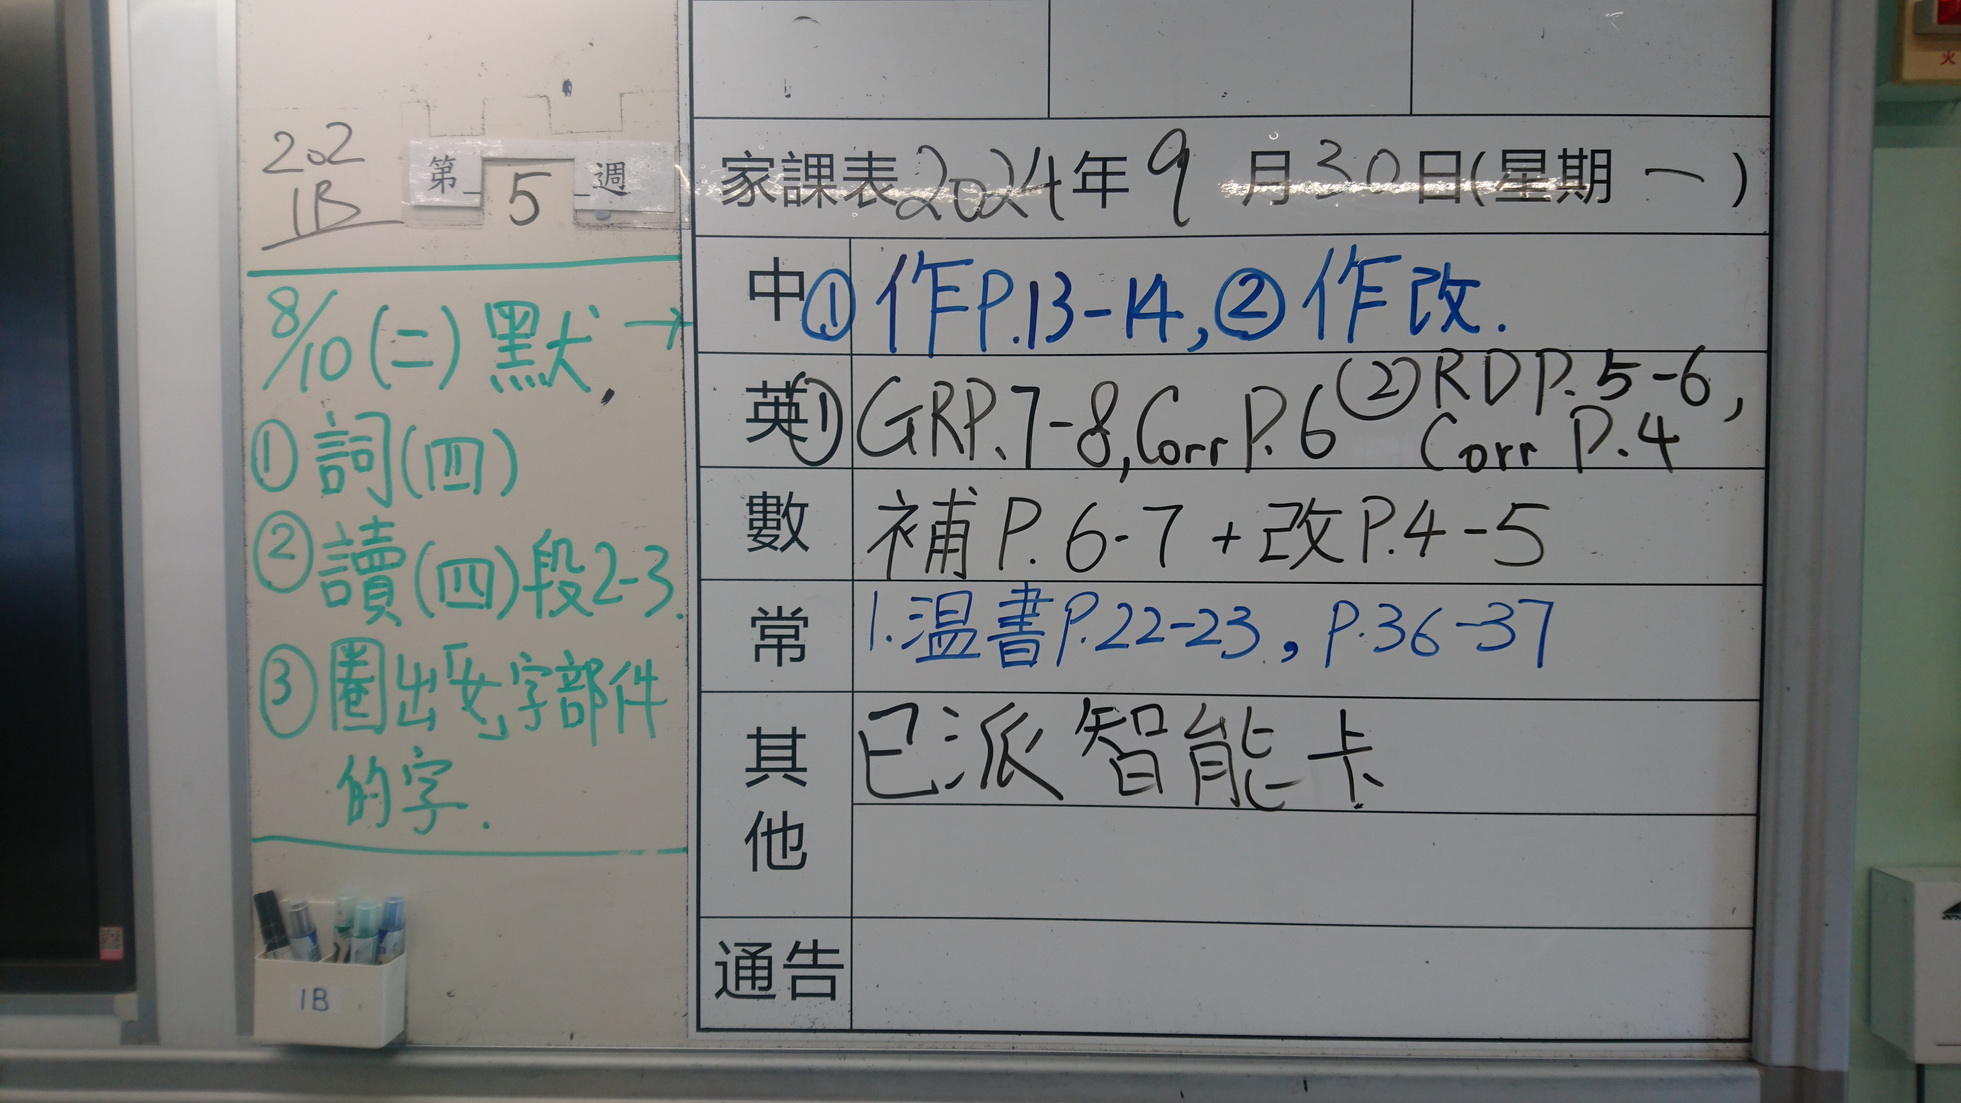 202
1B
第 5 週
8/10 (二) 默. →
① 詞(四)
② 讀(四)段2-3.
③ 圈出「女」字部件
的字.
1B
家課表2024年9月30日(星期一)
中 ① 作P.13-14, ② 作改.
英 ① GRP.7-8, Corr P.6 ② RD P.5-6,
Corr P.4
數 補P.6-7 + 改P.4-5
常 1.温書P.22-23, P.36-37
其他 已派智能卡
通告
火